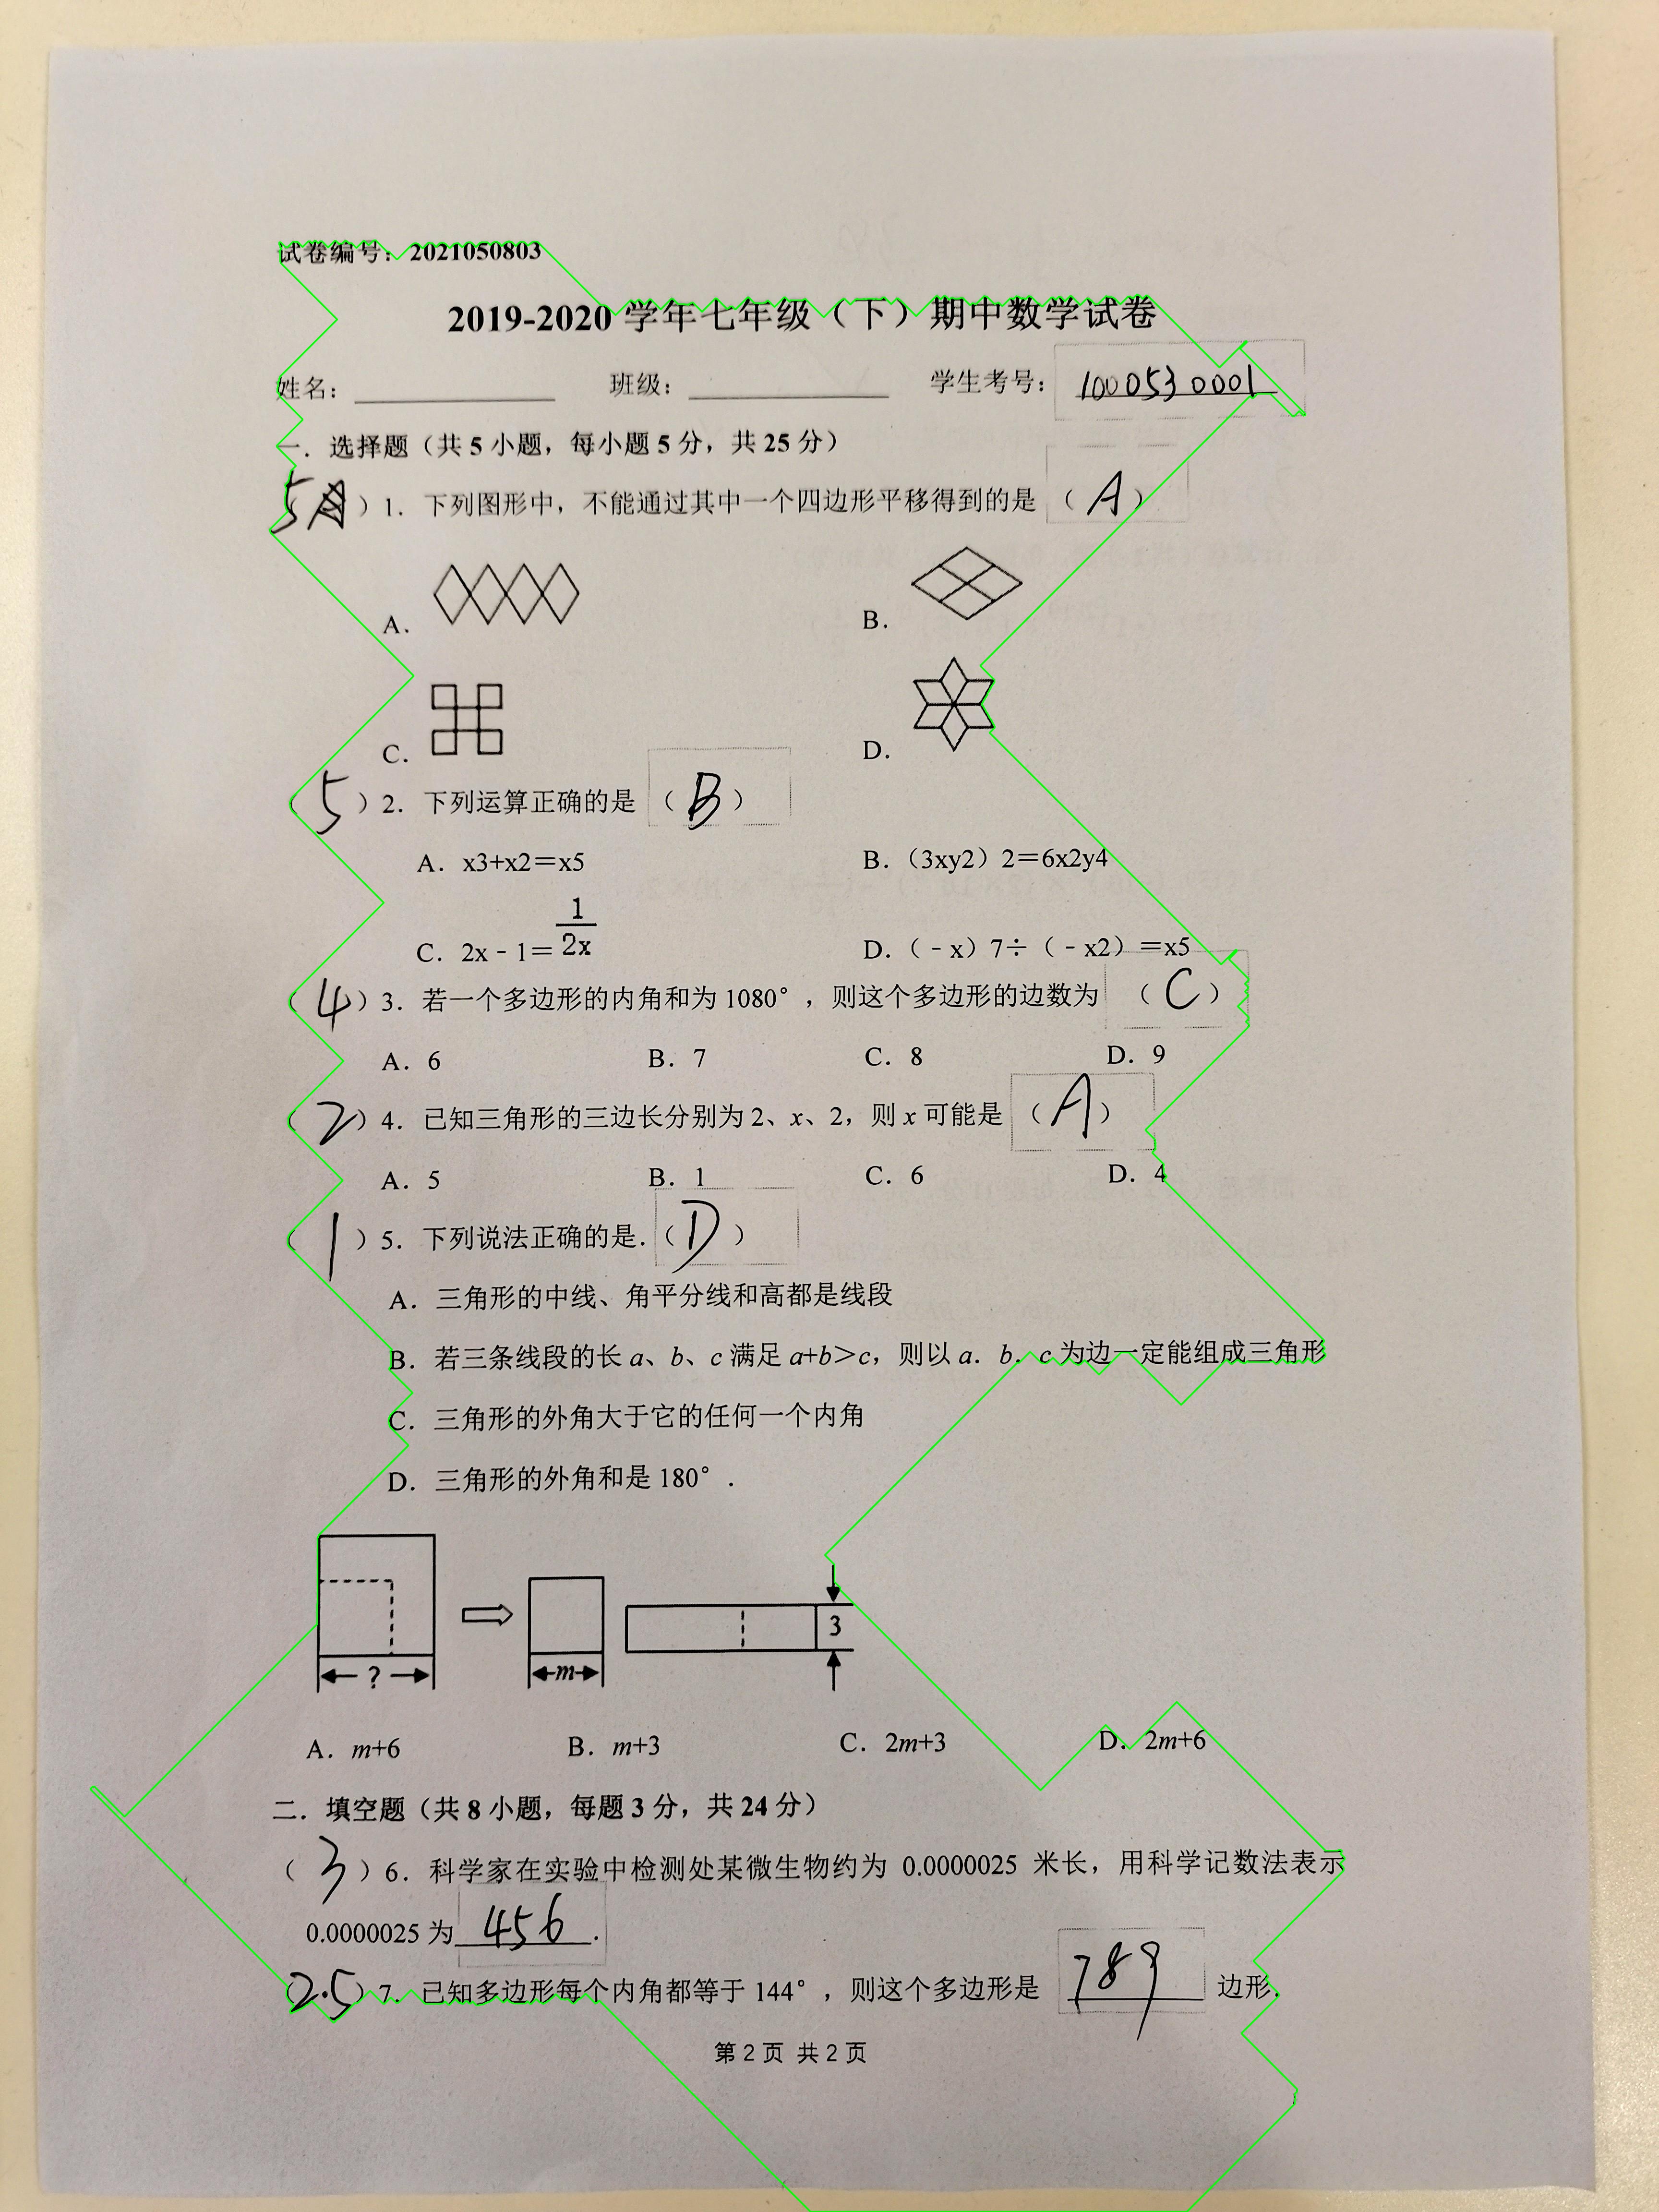 试卷编号：2021050803
2019-2020 学年七年级（下）期中数学试卷
姓名： 班级： 学生考号： 1000530001
一．选择题（共 5 小题，每小题 5 分，共 25 分）
（5 ）1．下列图形中，不能通过其中一个四边形平移得到的是 （ A ）
A． B．
C． D．
（5）2．下列运算正确的是 （ B ）
A．x3+x2＝x5 B．（3xy2）2＝6x2y4
C．2x﹣1＝1/2x D．（﹣x）7÷（﹣x2）＝x5
（4）3．若一个多边形的内角和为 1080°，则这个多边形的边数为 （ C ）
A．6 B．7 C．8 D．9
（2）4．已知三角形的三边长分别为 2、x、2，则 x 可能是 （ A ）
A．5 B．1 C．6 D．4
（1）5．下列说法正确的是.（ D ）
A．三角形的中线、角平分线和高都是线段
B．若三条线段的长 a、b、c 满足 a+b＞c，则以 a．b．c 为边一定能组成三角形
C．三角形的外角大于它的任何一个内角
D．三角形的外角和是 180°．
? m 3
A．m+6 B．m+3 C．2m+3 D．2m+6
二．填空题（共 8 小题，每题 3 分，共 24 分）
（3）6．科学家在实验中检测处某微生物约为 0.0000025 米长，用科学记数法表示
0.0000025 为 456 .
（2.5）7．已知多边形每个内角都等于 144°，则这个多边形是 789 边形.
第 2 页 共 2 页